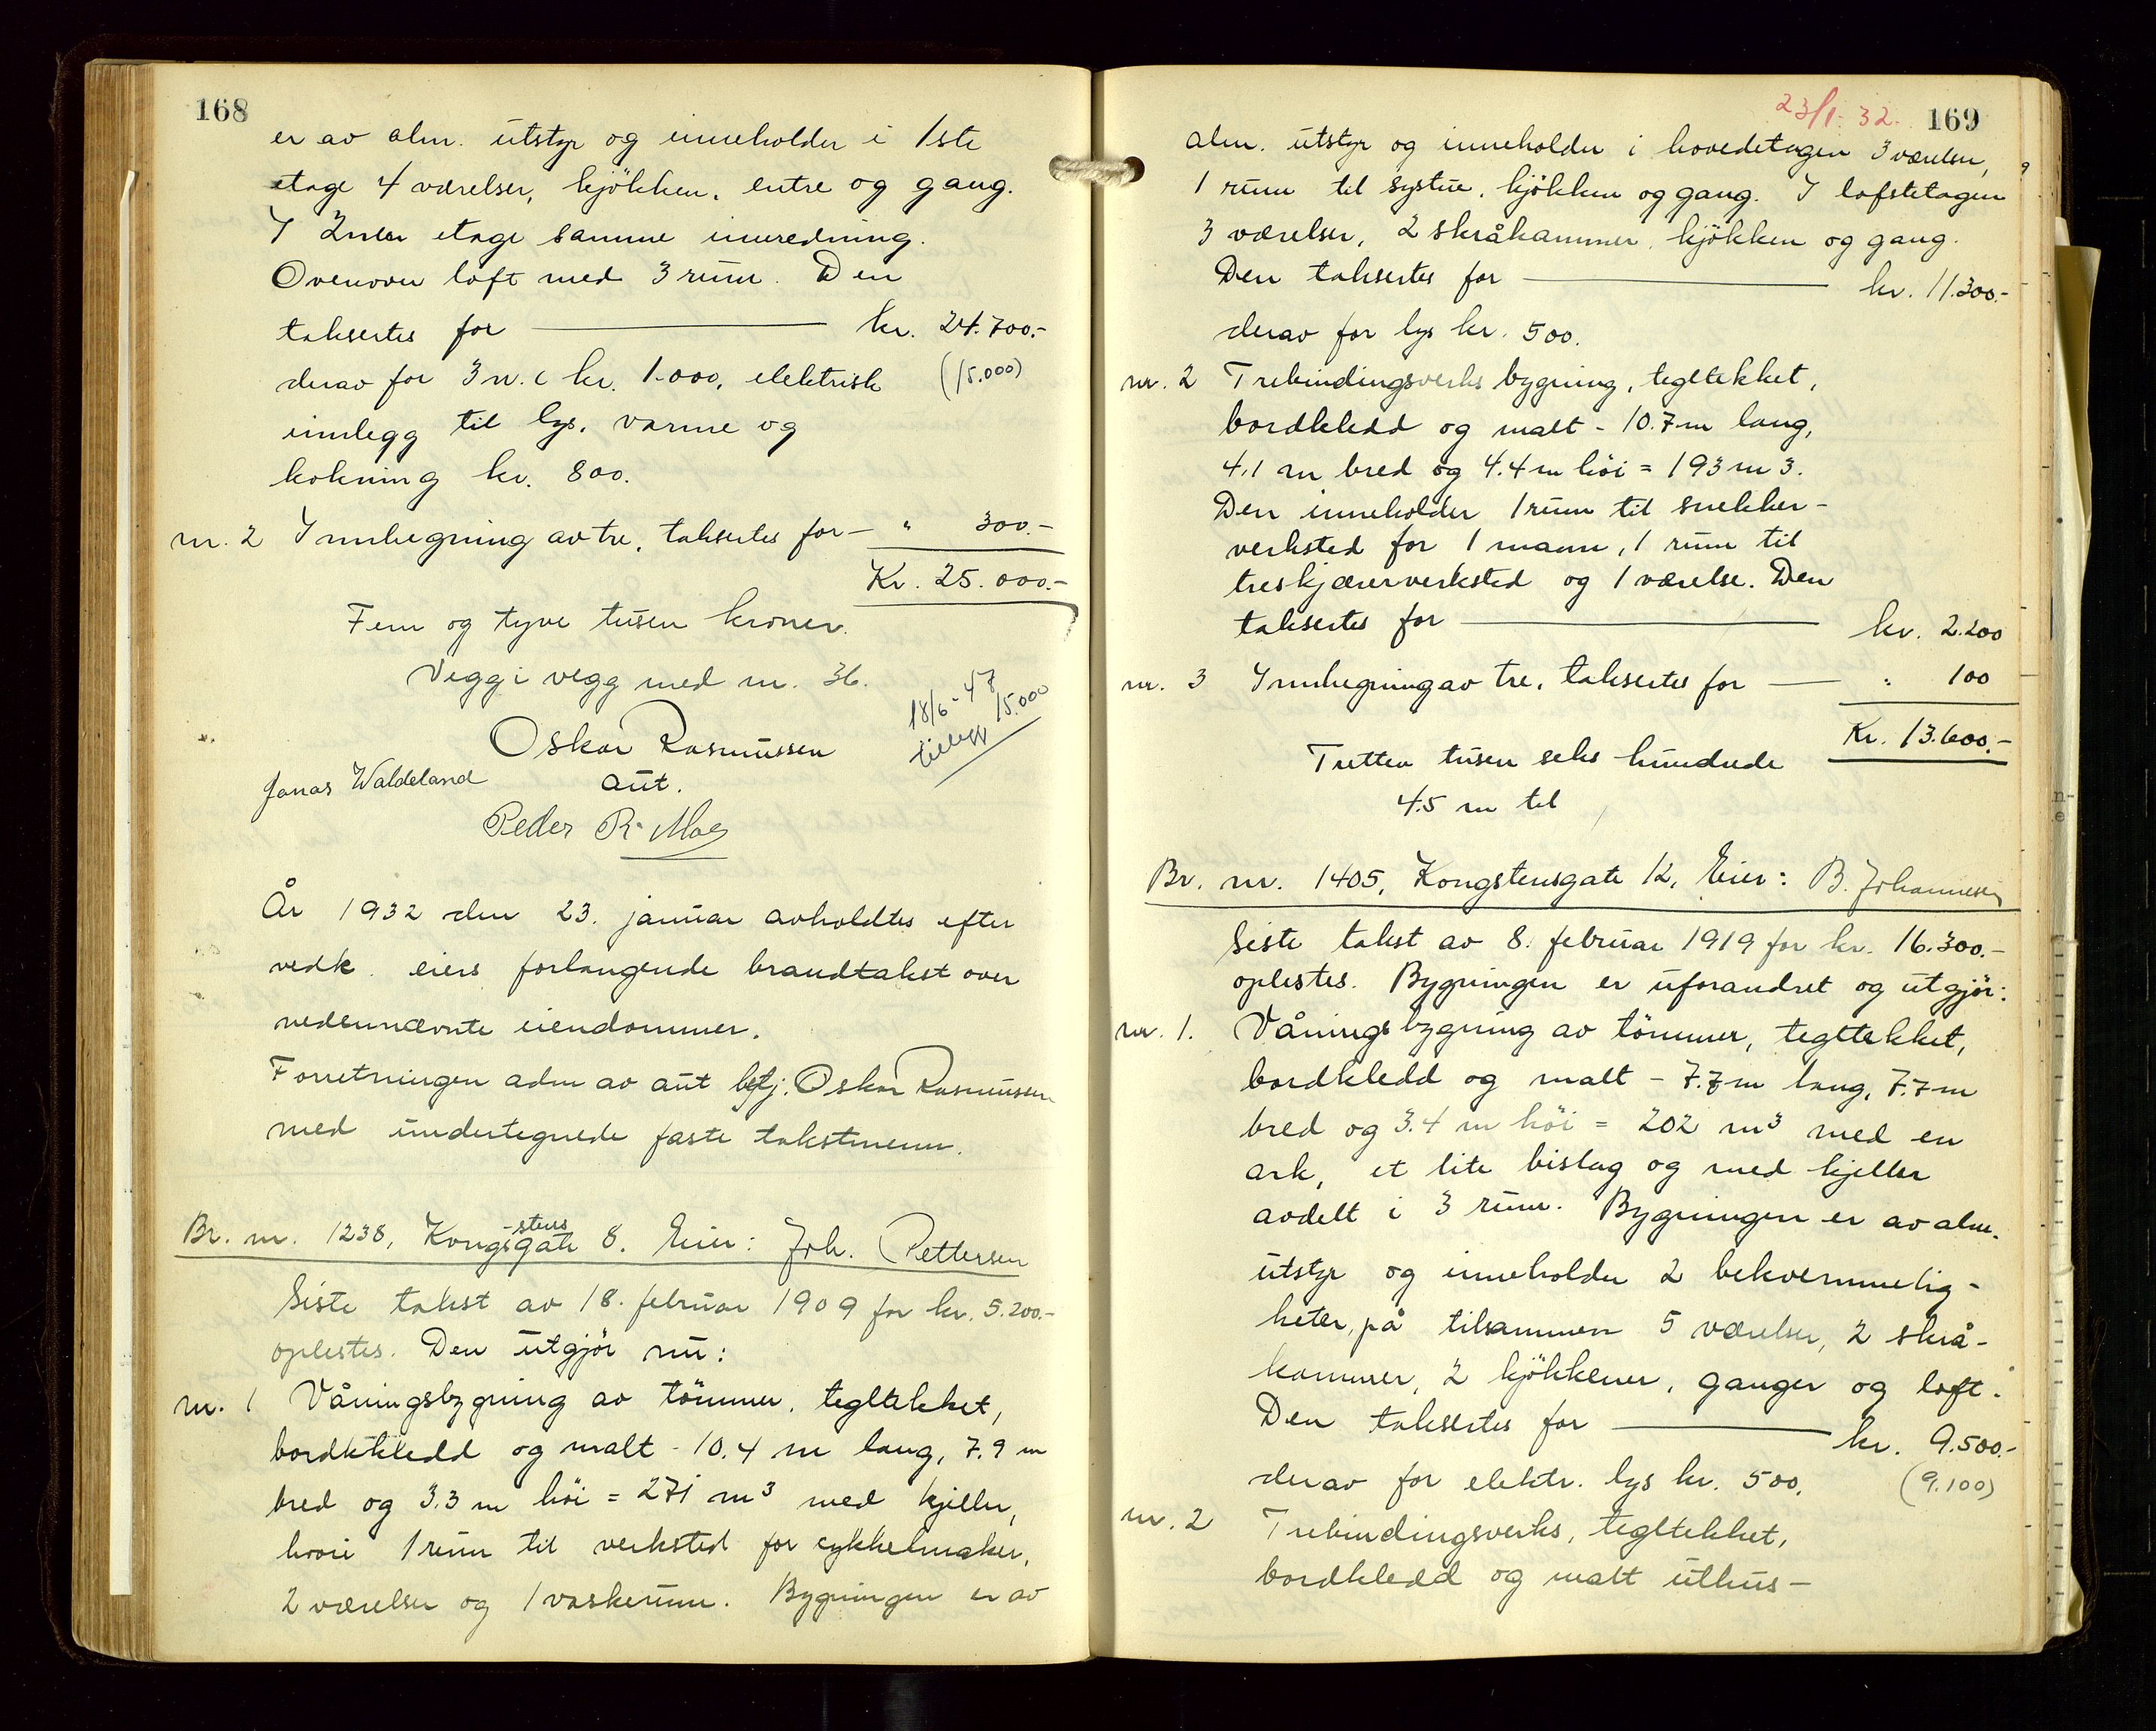 168
er av alm. utstyr og inneholder i 1ste
etage 4 værelser, kjökken, entre og gang.
I 2nen etage samme innredning.
Ovenover loft med 3 rum. Den
taksertes for — kr. 24.700.-
derav for 3 w.c kr. 1.000, elektrisk (15.000)
innlegg til lys, varme og
kokning kr. 800.
nr. 2 Innhegning av tre, taksertes for — " 300.-
Kr. 25.000.-
Fem og tyve tusen kroner.
Vegg i vegg med nr. 36.
18/6-47
tillegg 15.000
Oskar Rasmussen
Jonas Waldeland aut.
Peder R. Moe
År 1932 den 23. januar avholdtes efter
vedk. eiers forlangende brandtakst over
nedennævnte eiendommer.
Forretningen adm av aut bstj. Oskar Rasmussen
med undertegnede faste takstmenn.
Br. nr. 1238, Kongs-stensgate 8. Eier: Joh. Pettersen
Siste takst av 18. februar 1909 for kr. 5.200.-
oplestes. Den utgjör nu:
nr. 1 Våningsbygning av tömmer, tegltekket,
bordkkledd og malt - 10.4 m lang, 7.9 m
bred og 3.3 m höi = 271 m3 med kjeller,
hvori 1 rum til verksted for cykkelmaker,
2 værelser og 1 vaskerum. Bygningen er av
23/1-32. 169
alm. utstyr og inneholder i hovedetagen 3 værelser,
1 rum til systue, kjökken og gang. I loftstetagen
3 værelser, 2 skråkammer, kjökken og gang.
Den taksertes for — kr. 11.300.-
derav for lys kr. 500.
nr. 2 Trebindingsverks bygning, tegltekket,
bordkledd og malt - 10.7 m lang,
4,1 m bred og 4.4 m höi = 193 m3.
Den inneholder 1 rum til snekker-
verksted for 1 mann, 1 rum til
treskjærerverksted og 1 værelse. Den
taksertes for — kr. 2.200
nr. 3 Innhegning av tre, taksertes for — " 100
Kr. 13.600.-
Tretten tusen seks hundrede
4.5 m til
Br. nr. 1405, Kongstensgate 12, Eier: B. Johannesen
Siste takst av 8. februar 1919 for kr. 16.300.-
oplestes. Bygningen er uforandret og utgjör:
nr. 1. Våningsbygning av tömmer, tegltekket,
bordkledd og malt - 7.7 m lang, 7.7 m
bred og 3.4 m höi = 202 m3 med en
ark, et lite bislag og med kjeller
avdelt i 3 rum. Bygningen er av alm.
utstyr og inneholder 2 bekvemmelig-
heter, på tilsammen 5 værelser, 2 skrå-
kammer, 2 kjökkener, ganger og loft.
Den taksertes for — kr. 9.500.-
derav for elektr. lys kr. 500. (9.100)
nr. 2 Trebindingsverks, tegltekket,
bordkledd og malt uthus-